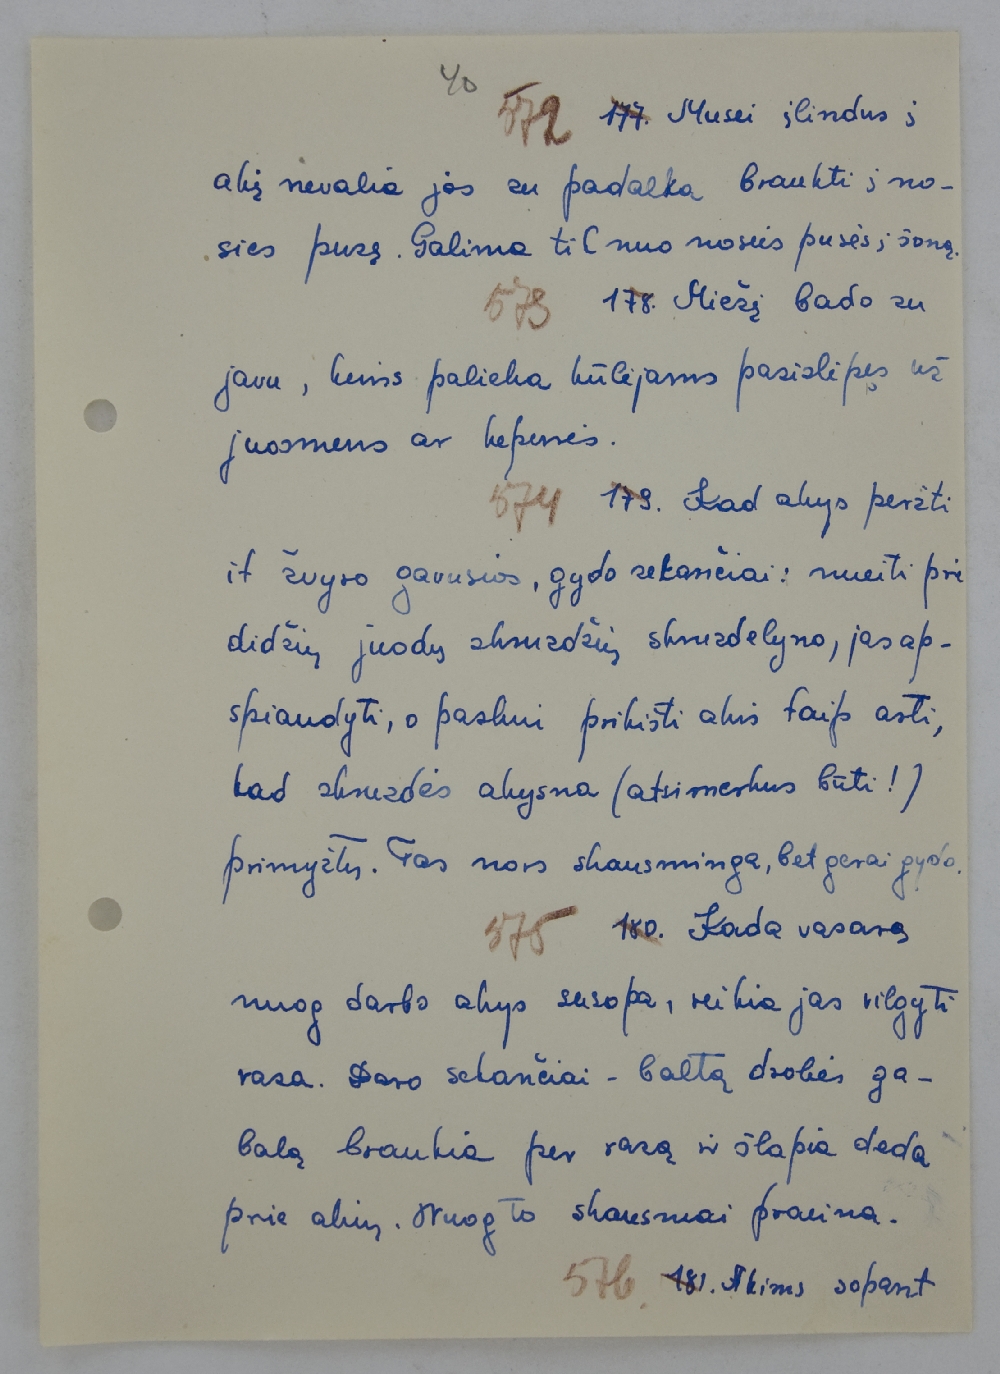 40
572 177. Musei įlindus į
akį nevalia jos su padalka braukti į no-
sies pusę. Galima til nuo nosies pusės į šoną.
573 178. Miežį bado su
javu, kuris palieka kūlėjams pasislėpęs už
juosmens ar kepurės.
574 179. Kad akys peršti
it žvyro gavusios, gydo sekančiai: nueiti prie
didžių juodų skruzdžių skruzdėlyno, jas ap-
spiaudyti, o paskui prikišti akis taip arti,
kad skruzdės akysna (atsimerkus būti!)
primyžtų. Tas nors skausminga, bet gerai gydo.
575 180. Kada vasarą
nuog darbo akys susopa, reikia jas vilgyti
rasa. Daro sekančiai - baltą drobės ga-
balą braukia per rasą ir šlapia deda
prie akių. Nuog to skausmai praeina.
576. 181. Akims sopant